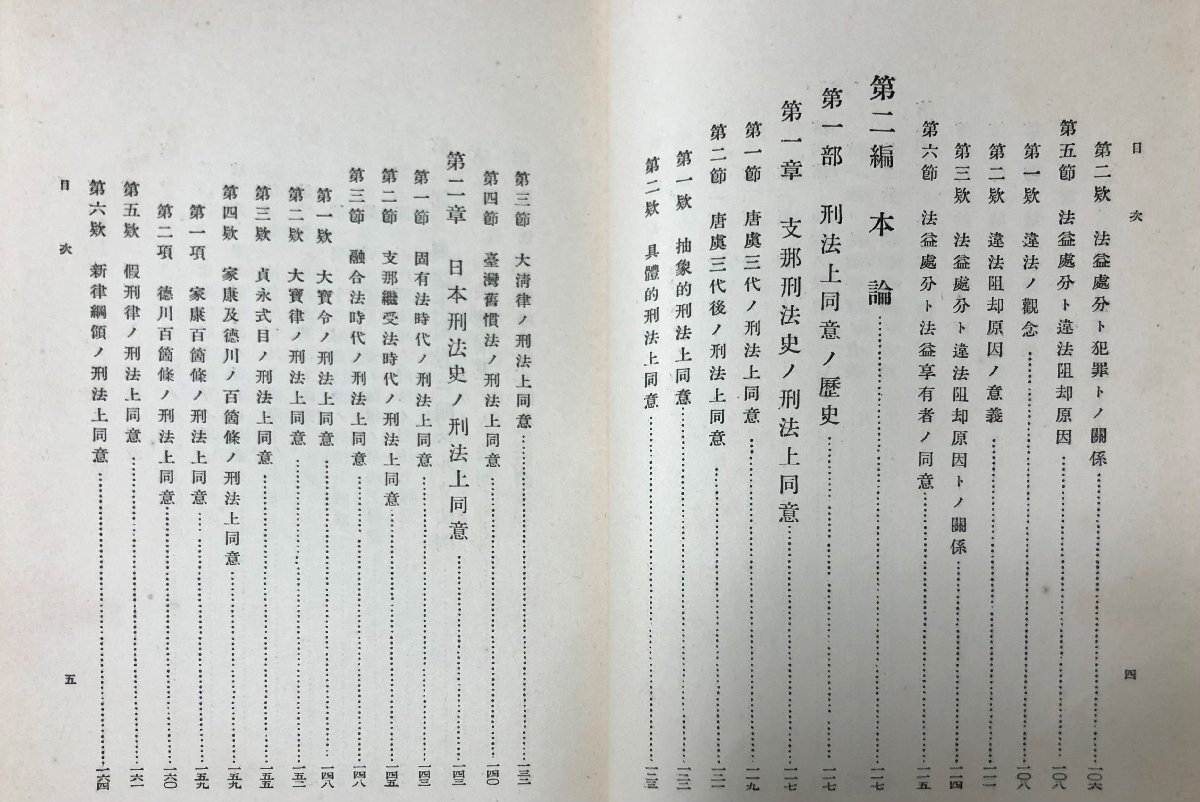 目次
四
第二欵 法益處分ト犯罪トノ關係…一〇六
第五節 法益處分ト違法阻却原因…一〇八
第一欵 違法ノ觀念…一〇八
第二欵 違法阻却原因ノ意義…一一一
第三欵 法益處分ト違法阻却原因トノ關係…一一四
第六節 法益處分ト法益享有者ノ同意…一一五
第二編 本論…一一七
第一部 刑法上同意ノ歷史…一一七
第一章 支那刑法史ノ刑法上同意…一一七
第一節 唐虞三代ノ刑法上同意…一一九
第二節 唐虞三代後ノ刑法上同意…一二一
第一欵 抽象的刑法上同意…一二二
第二欵 具體的刑法上同意…一二三
第三節 大淸律ノ刑法上同意…一三二
第四節 臺灣舊慣法ノ刑法上同意…一四〇
第二章 日本刑法史ノ刑法上同意…一四三
第一節 固有法時代ノ刑法上同意…一四三
第二節 支那繼受法時代ノ刑法上同意…一四五
第三節 融合法時代ノ刑法上同意…一四八
第一欵 大寶令ノ刑法上同意…一四八
第二欵 大寶律ノ刑法上同意…一五二
第三欵 貞永式目ノ刑法上同意…一五五
第四欵 家康及德川ノ百箇條ノ刑法上同意…一五九
第一項 家康百箇條ノ刑法上同意…一五九
第二項 德川百箇條ノ刑法上同意…一六〇
第五欵 假刑律ノ刑法上同意…一六一
第六欵 新律綱領ノ刑法上同意…一六四
目次
五